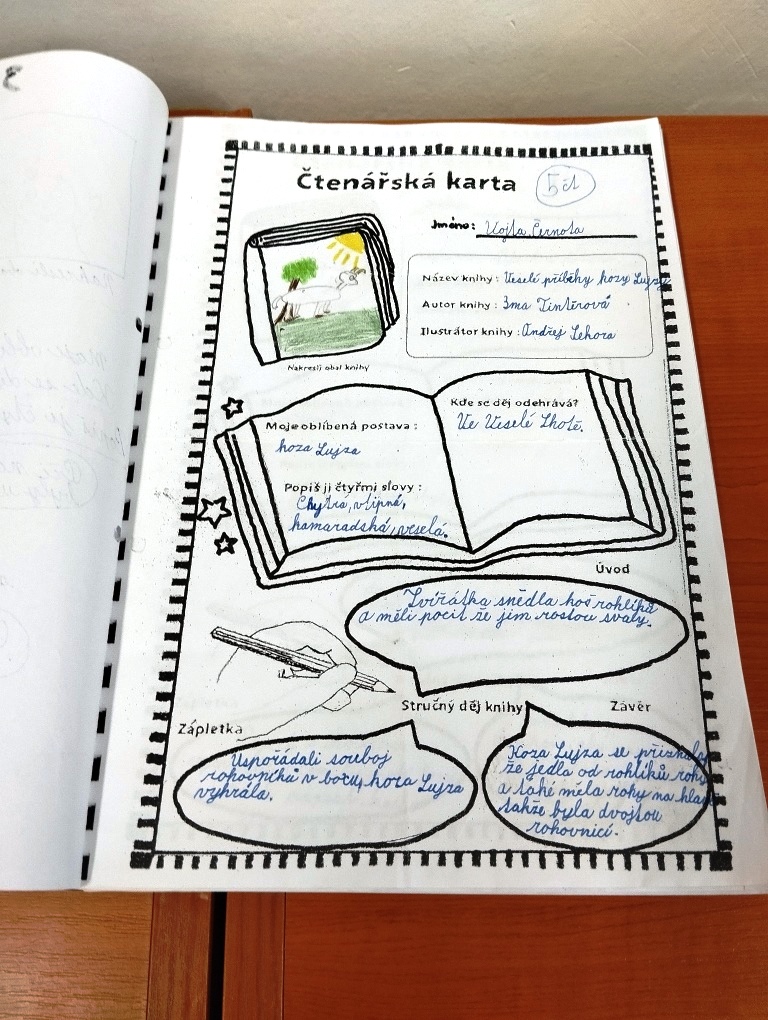 Čtenářská karta
5čt
Jméno: Vojta Černota
Název knihy : Veselé příběhy kozy Lujzy
Autor knihy : Ima Tintěrová
Ilustrátor knihy : Ondřej Sehora
Nakresli obal knihy
Moje oblíbená postava :
koza Lujza
Popiš ji čtyřmi slovy :
Chytrá, vtipná,
kamarádská, veselá.
Kde se děj odehrává?
Ve Veselé Lhotě.
Úvod
Zvířátka snědla koš rohlíků
a měli pocit že jim rostou svaly.
Stručný děj knihy
Zápletka
Uspořádali souboj
rohovníků v boxu, koza Lujza
vyhrála.
Závěr
Koza Lujza se přiznala,
že jedla od rohlíků rohy
a také měla rohy na hlavě
takže byla dvojtou
rohovnicí.